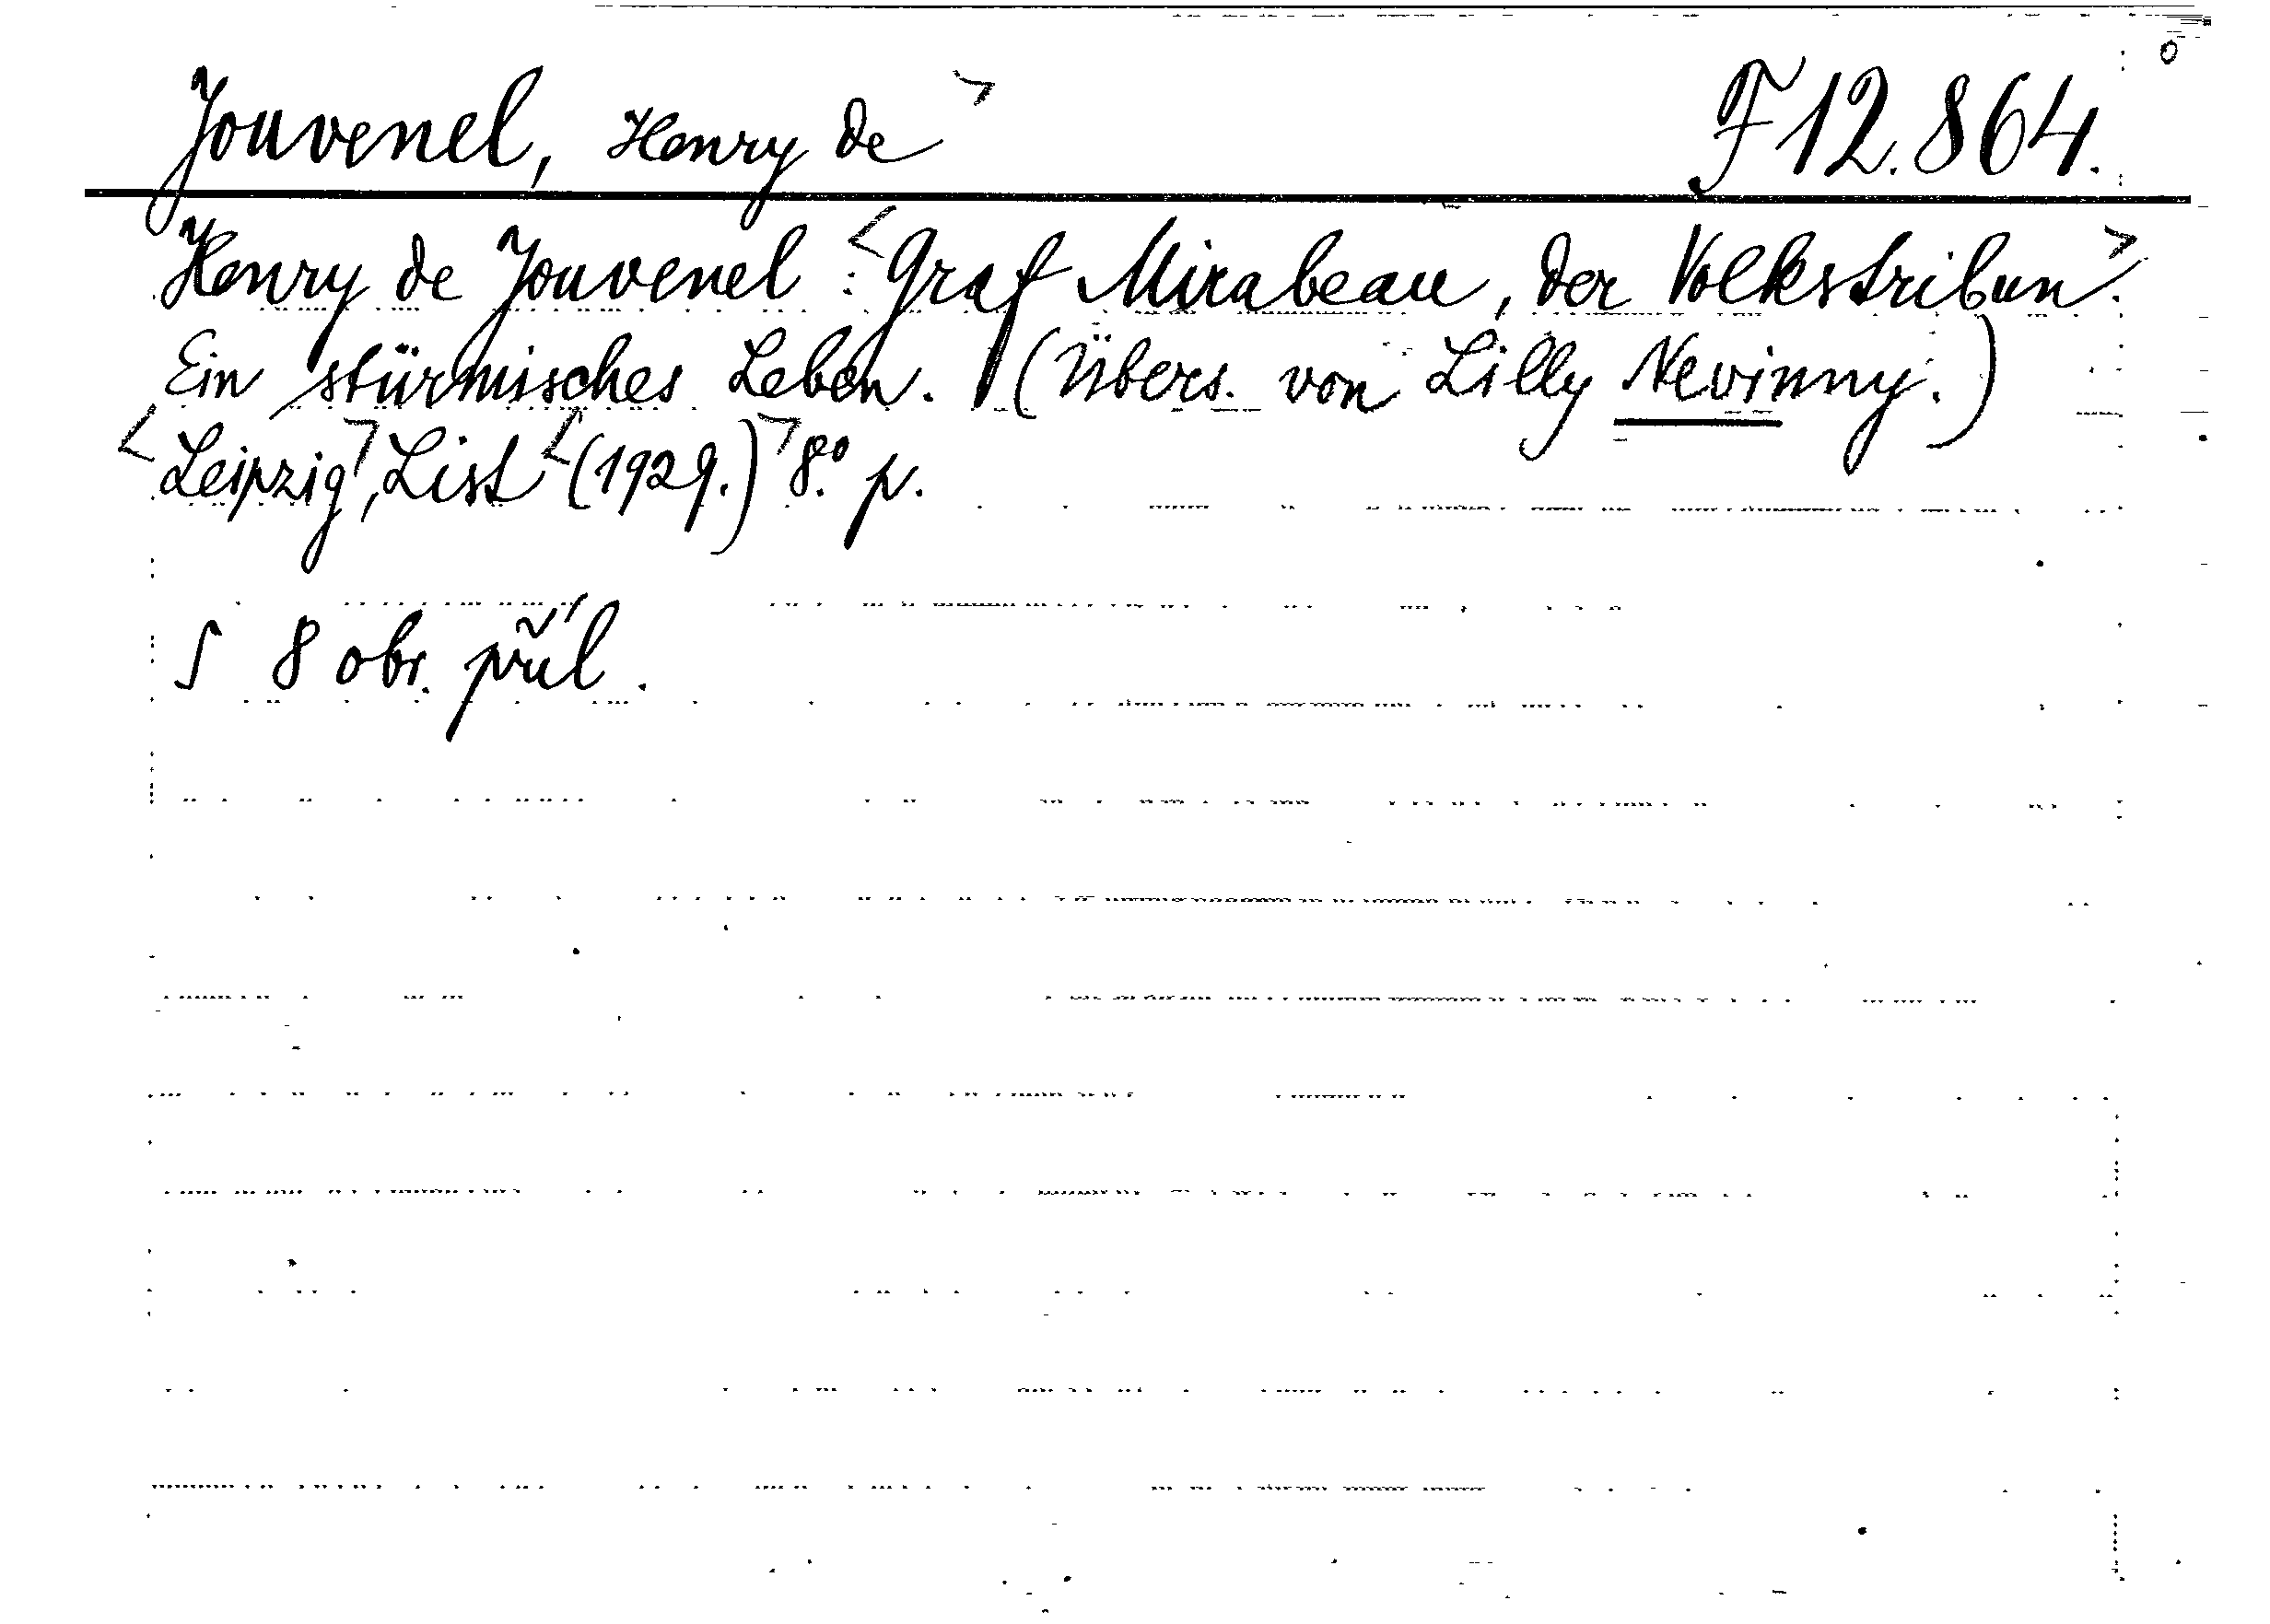 Jouvenel, Henry de > F 12.864.
Henry de Jouvenel : <Graf Mirabeau, der Volkstribun>.
Ein stürmisches Leben. (Übers. von Lilly Nevinny.)
<Leipzig>, List <(1929.)> 8.° p.
S 8 obr. příl.